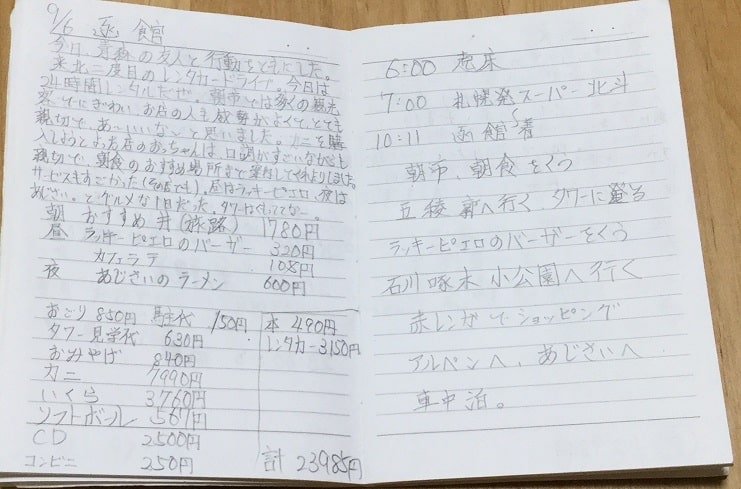 9/6 函館
今日、青森の友人と行動をともにした。
東北二度目のレンタカードライブ。今日は
24時間レンタルだぜ。朝市では多くの観光
客でにぎわいお店の人も威勢がよくて、とても
親切で、あ〜いいな〜と思いました。カニを購
入しようとお店のおっちゃんは口調がすごいながらも
親切で、朝食のおすすめ場所まで案内してくれよりしました。
サービスもすごかった(その店でも)。昼はラッキーピエロ、夜は
あじさい。とグルメな1日だった。タワーはくもってたな〜。
朝 おすすめ丼(旅路) 1780円
昼 ラッキーピエロのバーガー 320円
カフェラテ 108円
夜 あじさいのラーメン 600円
おごり 850円 駐車代 150円 本 490円
タワー見学代 630円 レンタカー3150円
おみやげ 840円
カニ 7990円
いくら 3760円
ソフトボール 567円
CD 2500円
コンビニ 250円 計 23985円
6:00 起床
7:00 札幌発スーパー北斗
10:11 函館着
朝市、朝食をくう
五稜郭へ行く、タワーに登る
ラッキーピエロのバーガーをくう
石川啄木小公園へ行く
赤レンガでショッピング
アルペンへ、あじさいへ
車中泊。